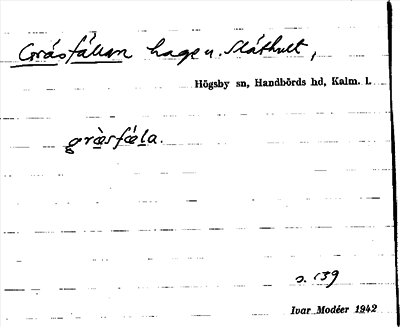 Gräsfällan hage u. Släthult,
Högsby sn, Handbörds hd, Kalm. l.
græsfæla.
s. 139
Ivar Modéer 1942